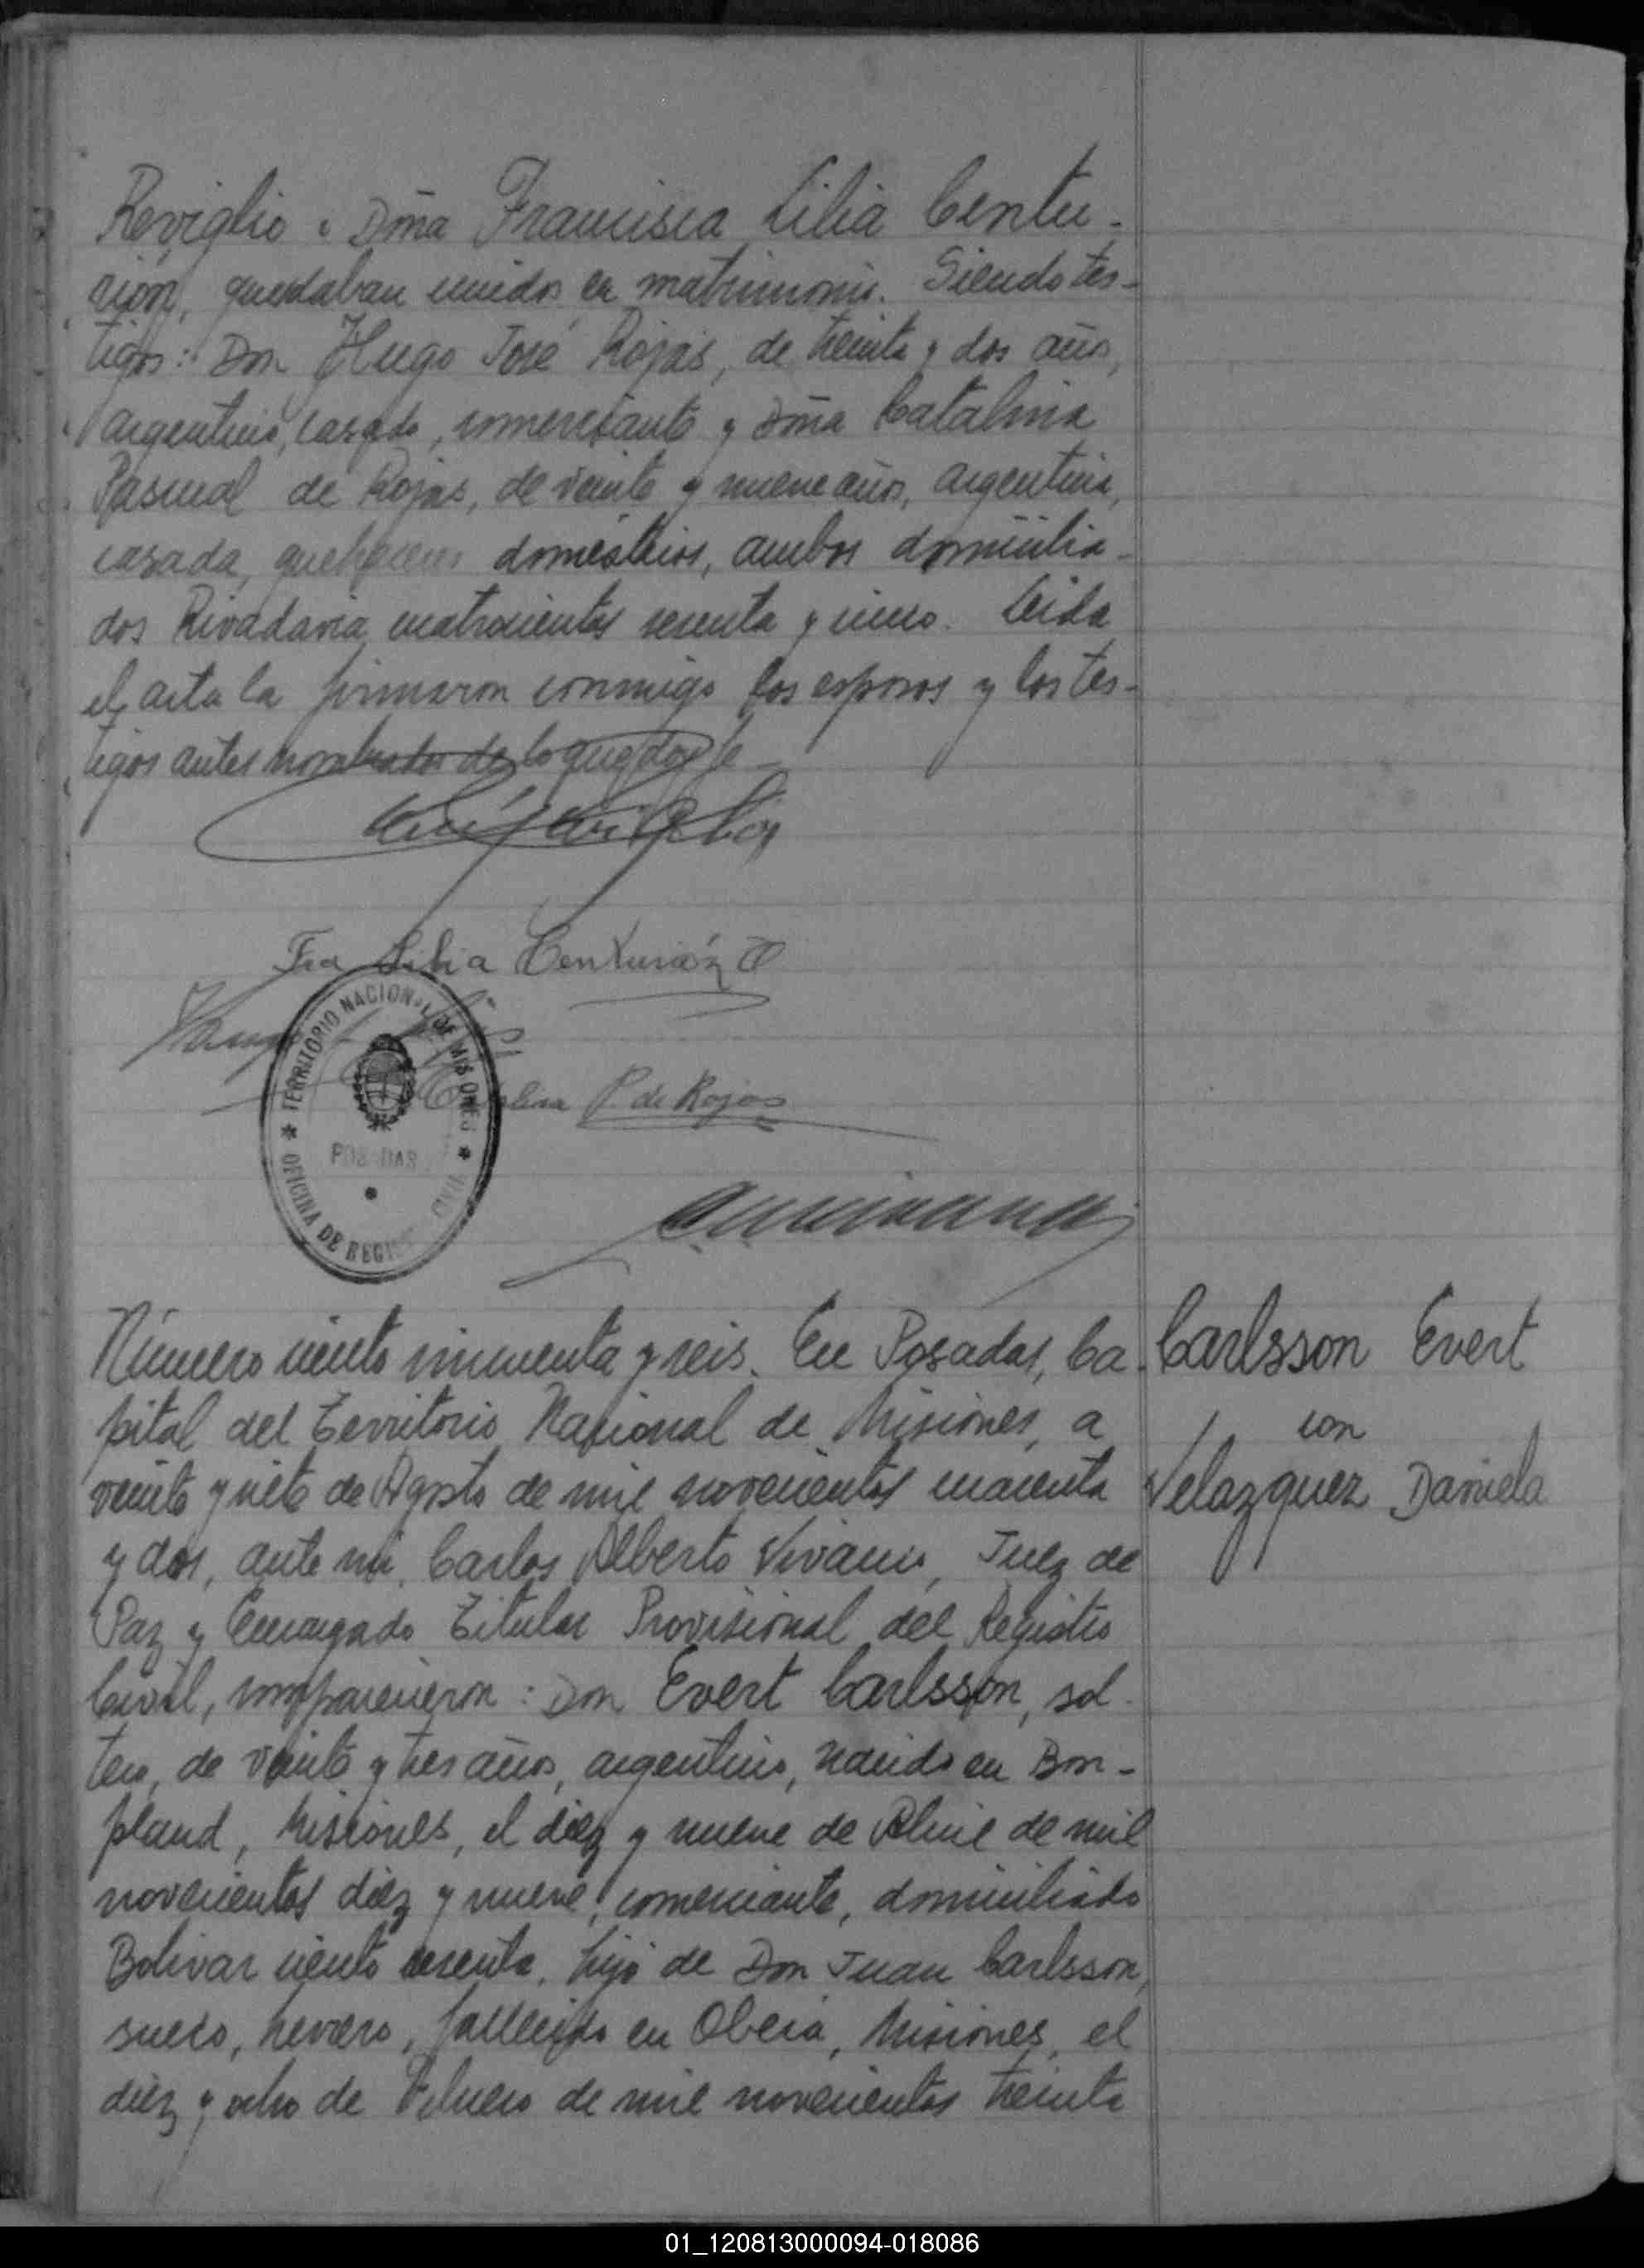 Reviglio a Dña Francisca Lilia Centu-
rión, quedaban unidos en matrimonio. Siendo tes-
tigos: Don Hugo José Rojas, de treinta y dos años,
argentino, casado, comerciante y Dña Catalina
Pascual de Rojas, de veinte y nueve años, argentina,
casada, quehaceres domésticos, ambos domicilia-
dos Rivadavia cuatrocientos sesenta y cinco. Leida
el acta la firmaron conmigo los esposos y los tes-
tigos antes nombrados de lo que doy fe-
Fca Lilia Centurión
Catalina P. de Rojas
TERRITORIO NACIONAL DE MISIONES
POSADAS
OFICINA DE REGIS CIVIL
Número ciento cincuenta y seis. En Posadas, Ca-
pital del Territorio Nacional de Misiones, a
veinte y siete de Agosto de mil novecientos cuarenta
y dos, ante mi, Carlos Alberto Vivanco, Juez de
Paz y Encargado Titular Provisional del Registro
Civil, comparecieron: Don Evert Carlsson, sol-
tero, de veinte y tres años, argentino, nacido en Bon-
pland, Misiones, el diez y nueve de Abril de mil
novecientos diez y nueve, comerciante, domiciliado
Bolivar ciento sesenta, hijo de Don Juan Carlsson,
sueco, herrero, fallecido en Oberá, Misiones, el
diez y ocho de Febrero de mil novecientos treinta
Carlsson Evert
con
Velazquez Daniela
01_120813000094-018086